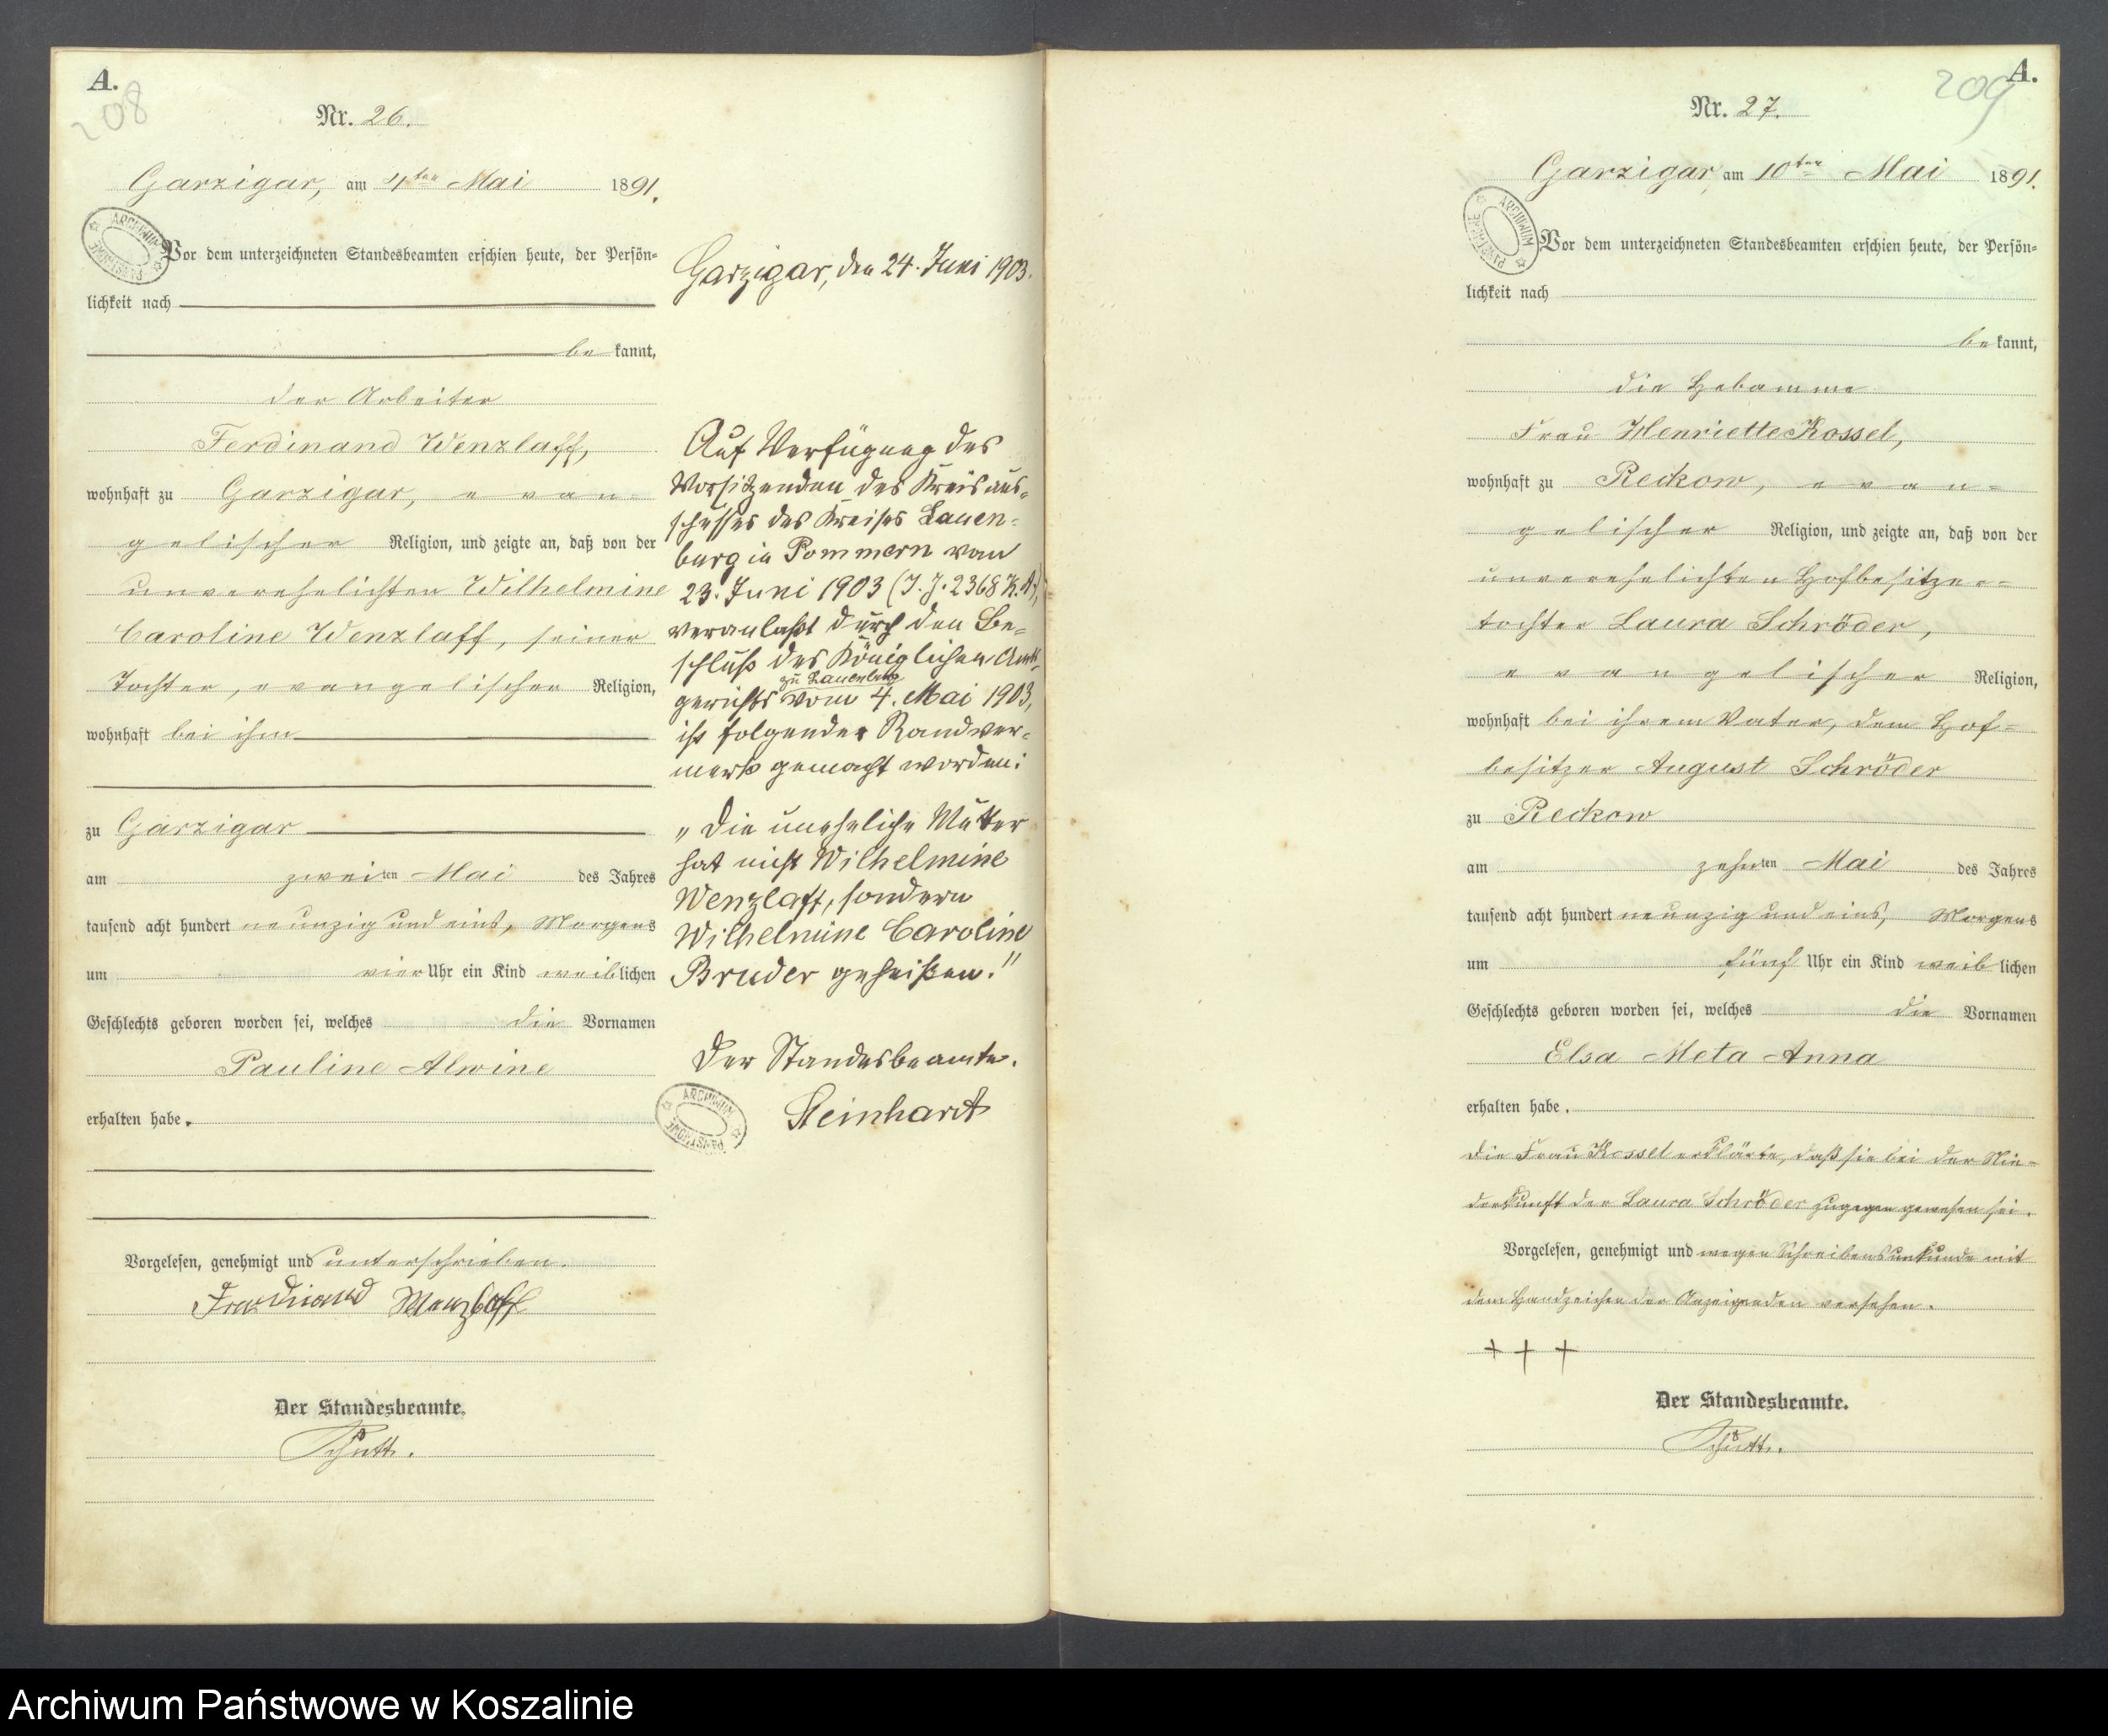 A.
208
Nr. 26.
Garzigar, am 4ten Mai 1891.
Vor dem unterzeichneten Standesbeamten erschien heute, der Persön-
lichkeit nach
be kannt,
der Arbeiter
Ferdinand Wenzlaff,
wohnhaft zu Garzigar, evan-
gelischer Religion, und zeigte an, daß von der
unverehelichten Wilhelmine
Caroline Wenzlaff, seiner
Tochter, evangelischer Religion,
wohnhaft bei ihm
zu Garzigar
am zweiten Mai des Jahres
tausend acht hundert neunzig und eins, Morgens
um vier Uhr ein Kind weiblichen
Geschlechts geboren worden sei, welches die Vornamen
Pauline Alwine
erhalten habe.
Vorgelesen, genehmigt und unterschrieben.
Ferdinand Wenzlaff
Der Standesbeamte.
Schutt.
Garzigar, den 24. Juni 1903.
Auf Verfügung des
Vorsitzenden des Kreisaus-
schusses des Kreises Lauen-
burg in Pommern vom
23. Juni 1903 (T. J. 2368 K.A.),
veranlaßt durch den Be-
schluß des Königlichen Amts-
gerichts zu Lauenburg vom 4. Mai 1903,
ist folgender Randver-
merk gemacht worden:
„Die uneheliche Mutter
hat nicht Wilhelmine
Wenzlaff, sondern
Wilhelmine Caroline
Bruder geheißen."
Der Standesbeamte.
Steinhardt
ARCHIWUM PAŃSTWOWE
A.
209
Nr. 27.
Garzigar, am 10ten Mai 1891.
Vor dem unterzeichneten Standesbeamten erschien heute, der Persön-
lichkeit nach
be kannt,
die Hebamme
Frau Henriette Kossel,
wohnhaft zu Reckow, evan-
gelischer Religion, und zeigte an, daß von der
unverehelichten Hofbesitzer-
tochter Laura Schröder,
evangelischer Religion,
wohnhaft bei ihrem Vater, dem Hof-
besitzer August Schröder
zu Reckow
am zehnten Mai des Jahres
tausend acht hundert neunzig und eins, Morgens
um fünf Uhr ein Kind weiblichen
Geschlechts geboren worden sei, welches die Vornamen
Elsa Meta Anna
erhalten habe.
Die Frau Kossel erklärte, daß sie bei der Nie-
derkunft der Laura Schröder zugegen gewesen sei.
Vorgelesen, genehmigt und wegen Schreibensunkunde mit
dem Handzeichen der Anzeigenden versehen.
+ + +
Der Standesbeamte.
Schutt.
Archiwum Państwowe w Koszalinie